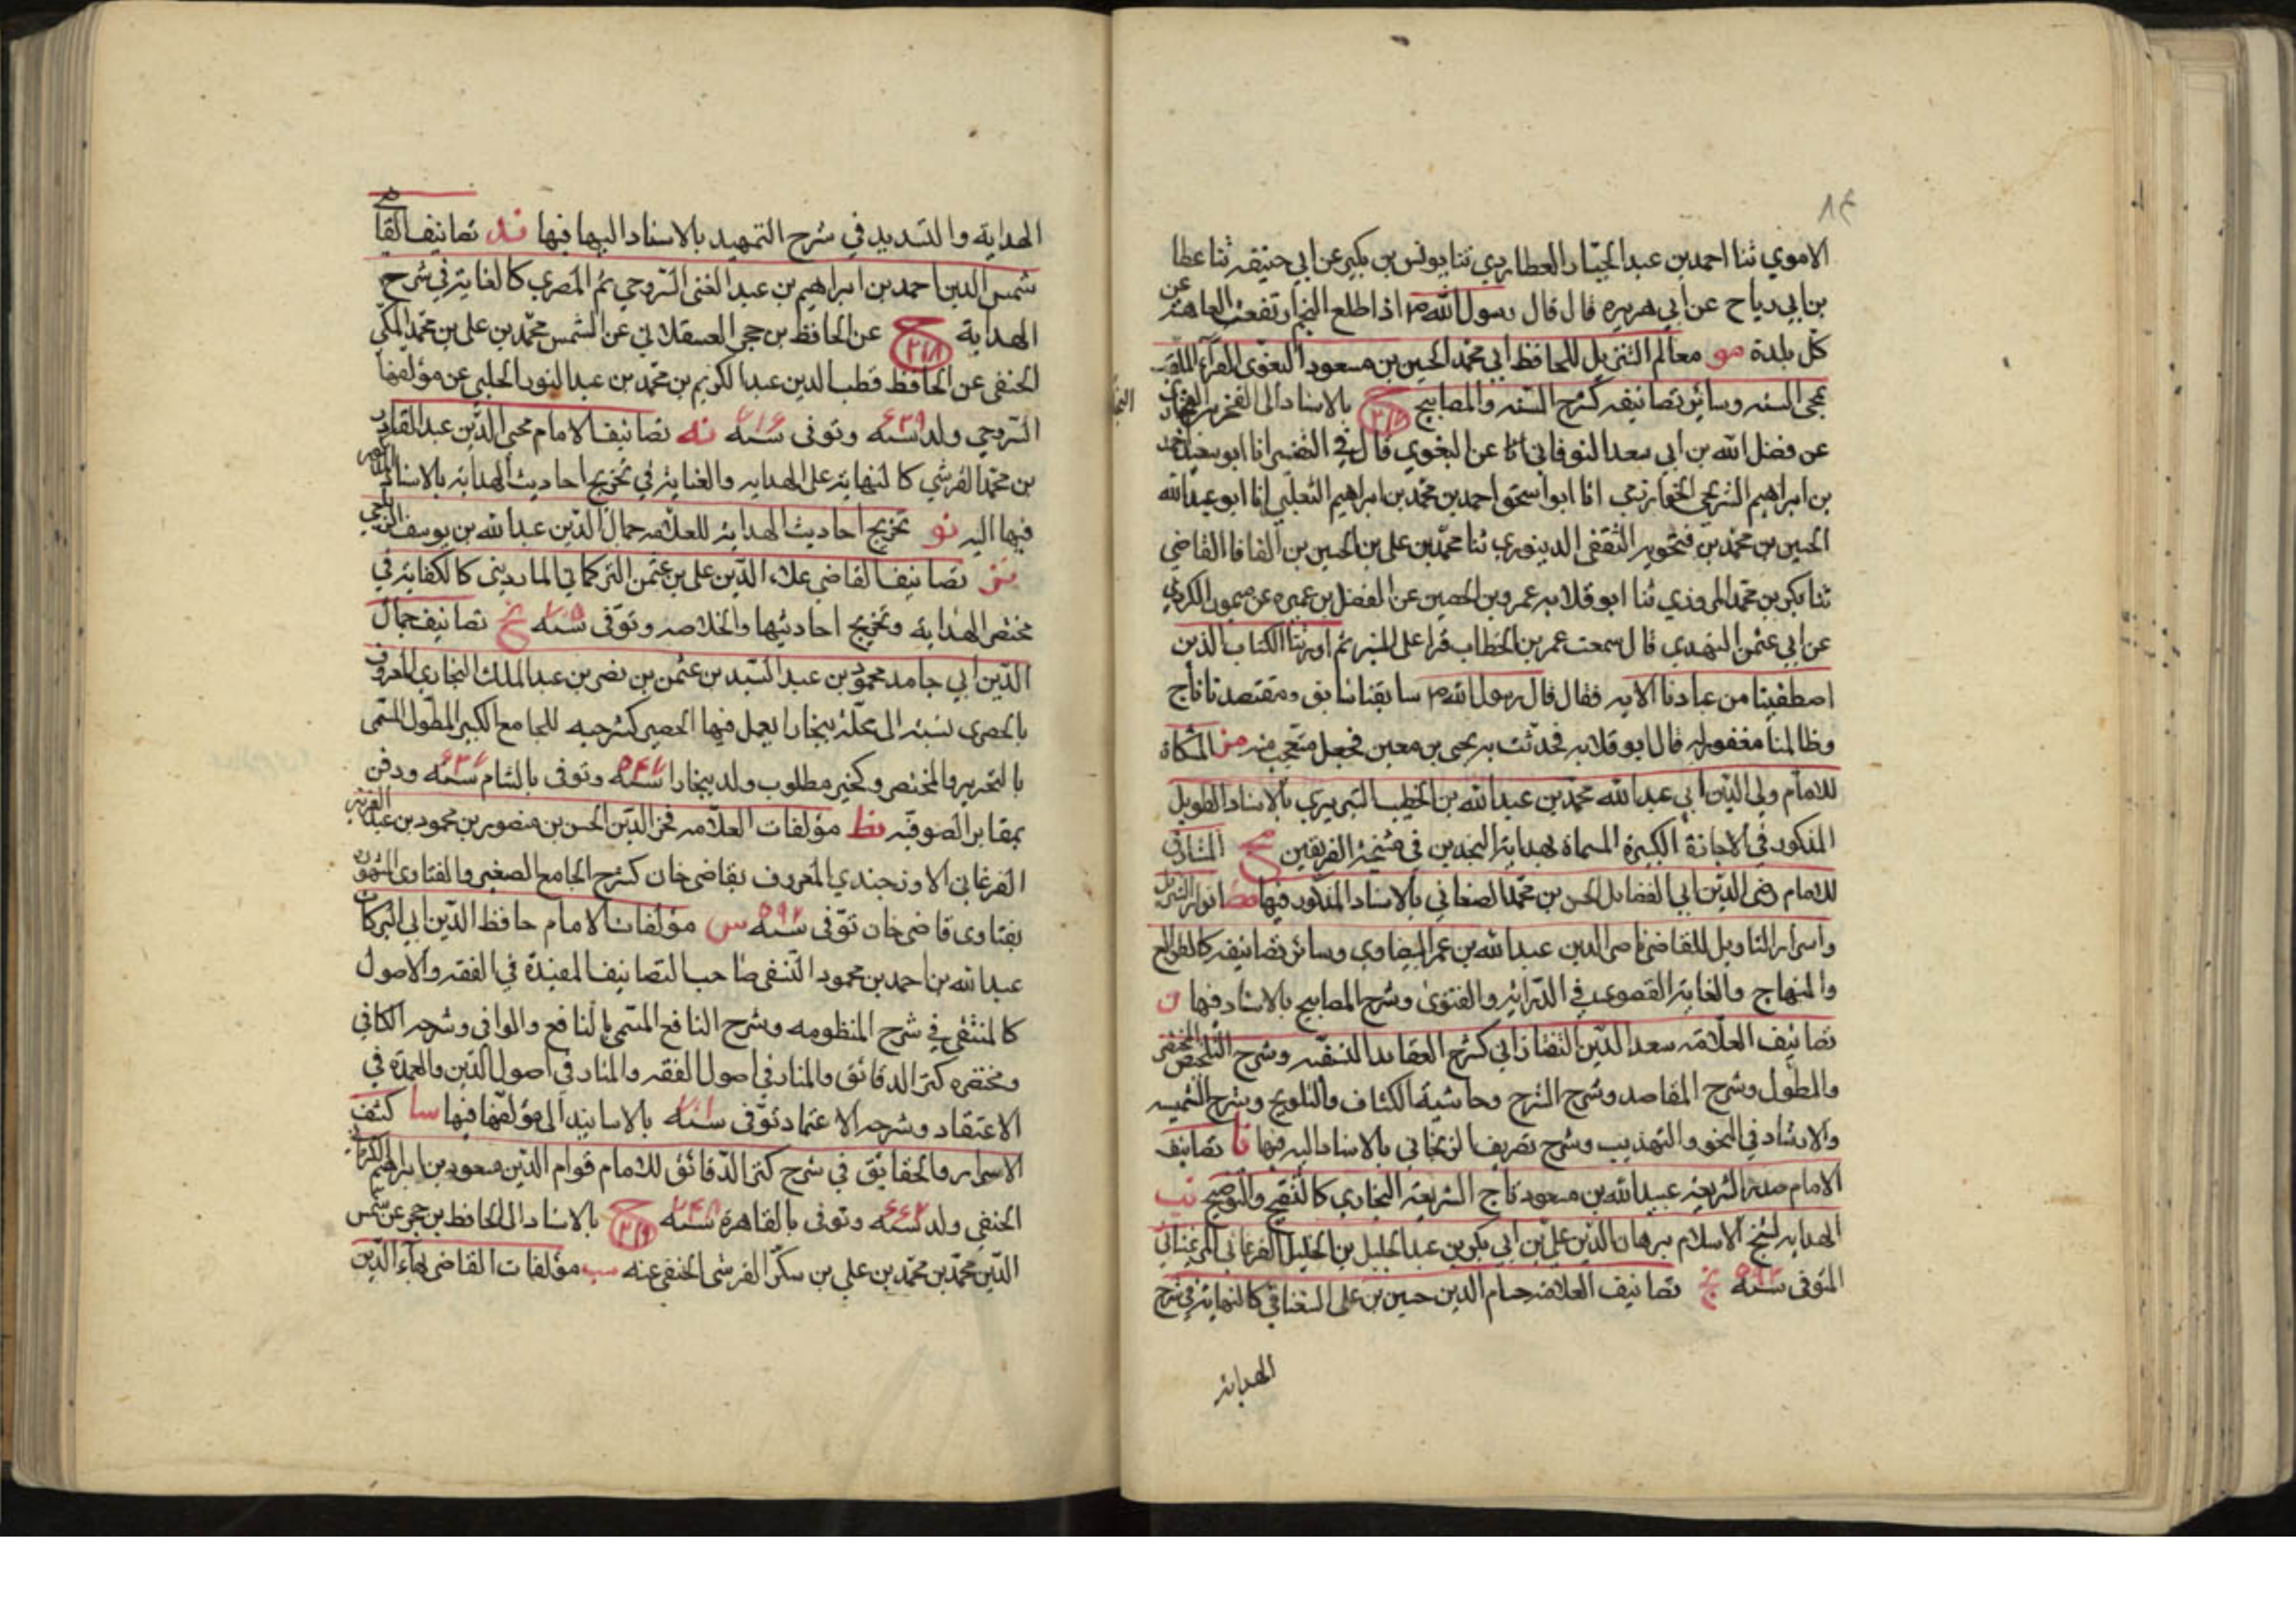 ٨٤
الاموي ثنا احمد بن عبد الجبّار العطاردي ثنا يونس بن بكير عن ابي حنيفه ثنا عطا
بن ابي رباح عن ابي هريره قال قال رسول الله م اذا اطلع النجم ارتفعت العاهة عن
كل بلدة مو معالم التنزيل للحافظ ابي محمّد الحسين بن مسعود البغوي الفرّآء الملقب
بمحي السنه وسائر تصانيفه كشرح السّنه والمصابيح ح ٣١٧ بالاسناد الى الفخر بن البخاري
عن فضل الله بن ابي سعد النوقاني انا عن البغوي قال في التفسير انا ابو سعيد احمد
بن ابراهيم الشريحي الخوارزمي انا ابو اسحق احمد بن محمّد بن ابراهيم الثعلبي انا ابو عبد الله
الحسين بن محمّد بن فنجويه الثقفي الدينوري ثنا محمّد بن علي بن الحسين بن القافا القاضي
ثنا بكر بن محمّد المروزي ثنا ابو قلابه عمرو بن الحصين عن الفضل بن عميره عن ميمون الكردي
عن ابي عثمن النهدي قال سمعت عمر بن الخطاب قرا على المنبر ثم اورثنا الكتاب الذين
اصطفينا من عبادنا الايه فقال قال رسول الله م سابقنا سابق ومقتصدنا ناج
وظالمنا مغفور له قال ابو قلابه فحدثت به يحيى بن معين فجعل يتعجب منه مز المشكاة
للامام ولي الدّين ابي عبد الله محمّد بن عبد الله بن الخطيب التبريزي بالاسناد الطويل
المذكور في الاجازة الكبيرة المسماة بهداية النجدين في مشيخة الفريقين مح المشارق
للامام رضي الدّين ابي الفضايل الحسن بن محمّد الصغاني بالاسناد المذكور فيها مط انوار التنزيل
واسرار التاويل للقاضي ناصر الدين عبد الله بن عمر البيضاوي وسائر تصانيفه كالطوالع
والمنهاج والغاية القصوى في الدّراية والفتوى وشرح المصابيح بالاسناد فيها ن
تصانيف العلّامه سعد الدّين التفتازاني كشرح العقايد النسفيه وشرح التلخيص المختصر
والمطوّل وشرح المقاصد وشرح الشرح وحاشية الكشاف والتلويح وشرح الشمسيه
والارشاد في النحو والتهذيب وشرح تصريف الزنجاني بالاسناد اليه فيها نا تصانيف
الامام صدر الشريعة عبيد الله بن مسعود تاج الشريعة البخاري كالتنقيح والتوضيح نب
الهدايه لشيخ الاسلام برهان الدّين علي بن ابي بكر بن عبد الجليل بن الخليل الفرغاني المرغيناني
المتوفى سنة ٥٩٣ نج تصانيف العلامه حسام الدين حسين بن علي السغناقي كالنهاية في شرح
الهداية
الهداية والتسديد في شرح التمهيد بالاسناد اليها فيها ند تصانيف القاضي
شمس الدين احمد بن ابراهيم بن عبد الغني السّروجي ثم المصري كالغاية في شرح
الهداية ح ٣١٨ عن الحافظ بن حجر العسقلاني عن الشمس محمّد بن علي بن محمّد المكّي
الحنفي عن الحافظ قطب الدين عبد الكريم بن محمّد بن عبد النور الحلبي عن مؤلفها
السّروجي ولد سنة ٦٣٩ وتوفى سنة ٧١٠ نه تصانيف الامام محي الدّين عبد القادر
بن محمّد القرشي كالنهاية على الهدايه والعناية في تخريج احاديث الهداية بالاسناد
فيها اليه نو تخريج احاديث الهداية للعلّامه جمال الدّين عبد الله بن يوسف الزيلعي
نز تصانيف القاضي علاء الدّين علي بن عثمن التركماني المارديني كالكفاية في
مختصر الهداية وتخريج احاديثها والخلاصه وتوّفى سنة ٧٥٠ نح تصانيف جمال
الدّين ابي حامد محمود بن عبد السّيد بن عثمن بن نصر بن عبد الملك البخاري المعروف
بالحصري نسبة الى محلّة ببخارا يعمل فيها الحصير كشرحيه للجامع الكبير المطوّل المسّمى
بالتحرير والمختصر وكخير مطلوب ولد ببخارا سنة ٥٤٦ وتوفى بالشام سنة ٦٣٦ ودفن
بمقابر الصوفيّه نط مؤلفات العلّامه فخر الدّين الحسن بن منصور بن محمود بن عبد العزيز
الفرغاني الاوزجندي المعروف بقاضي خان كشرح الجامع الصغير والفتاوى المشهورة
بفتاوى قاضي خان توّفى سنة ٥٩٢ س مؤلفات الامام حافظ الدّين ابي البركات
عبد الله بن احمد بن محمود النّسفي صاحب التصانيف المفيدة في الفقه والاصول
كالمستصفى في شرح المنظومه وشرح النافع المسمى بالنافع والوافي وشرحه الكافي
ومختصره كنز الدقائق والمنار في اصول الفقه والمنار في اصول الدّين والعمدة في
الاعتقاد وشرحه الاعتماد توّفى سنة ٧٠١ بالاسانيد الى مؤلفها فيها سا كشف
الاسرار والحقايق في شرح كنز الدّقائق للامام قوام الدّين مسعود بن ابراهيم الكرماني
الحنفي ولد سنة ٦٦٢ وتوفى بالقاهرة سنة ٧٤٨ ح ٣١٩ بالاسناد الى الحافظ بن حجر عن شمس
الدّين محمّد بن محمّد بن علي بن سكّر القرشي الحنفي عنه سب مؤلفات القاضي بهآء الدّين